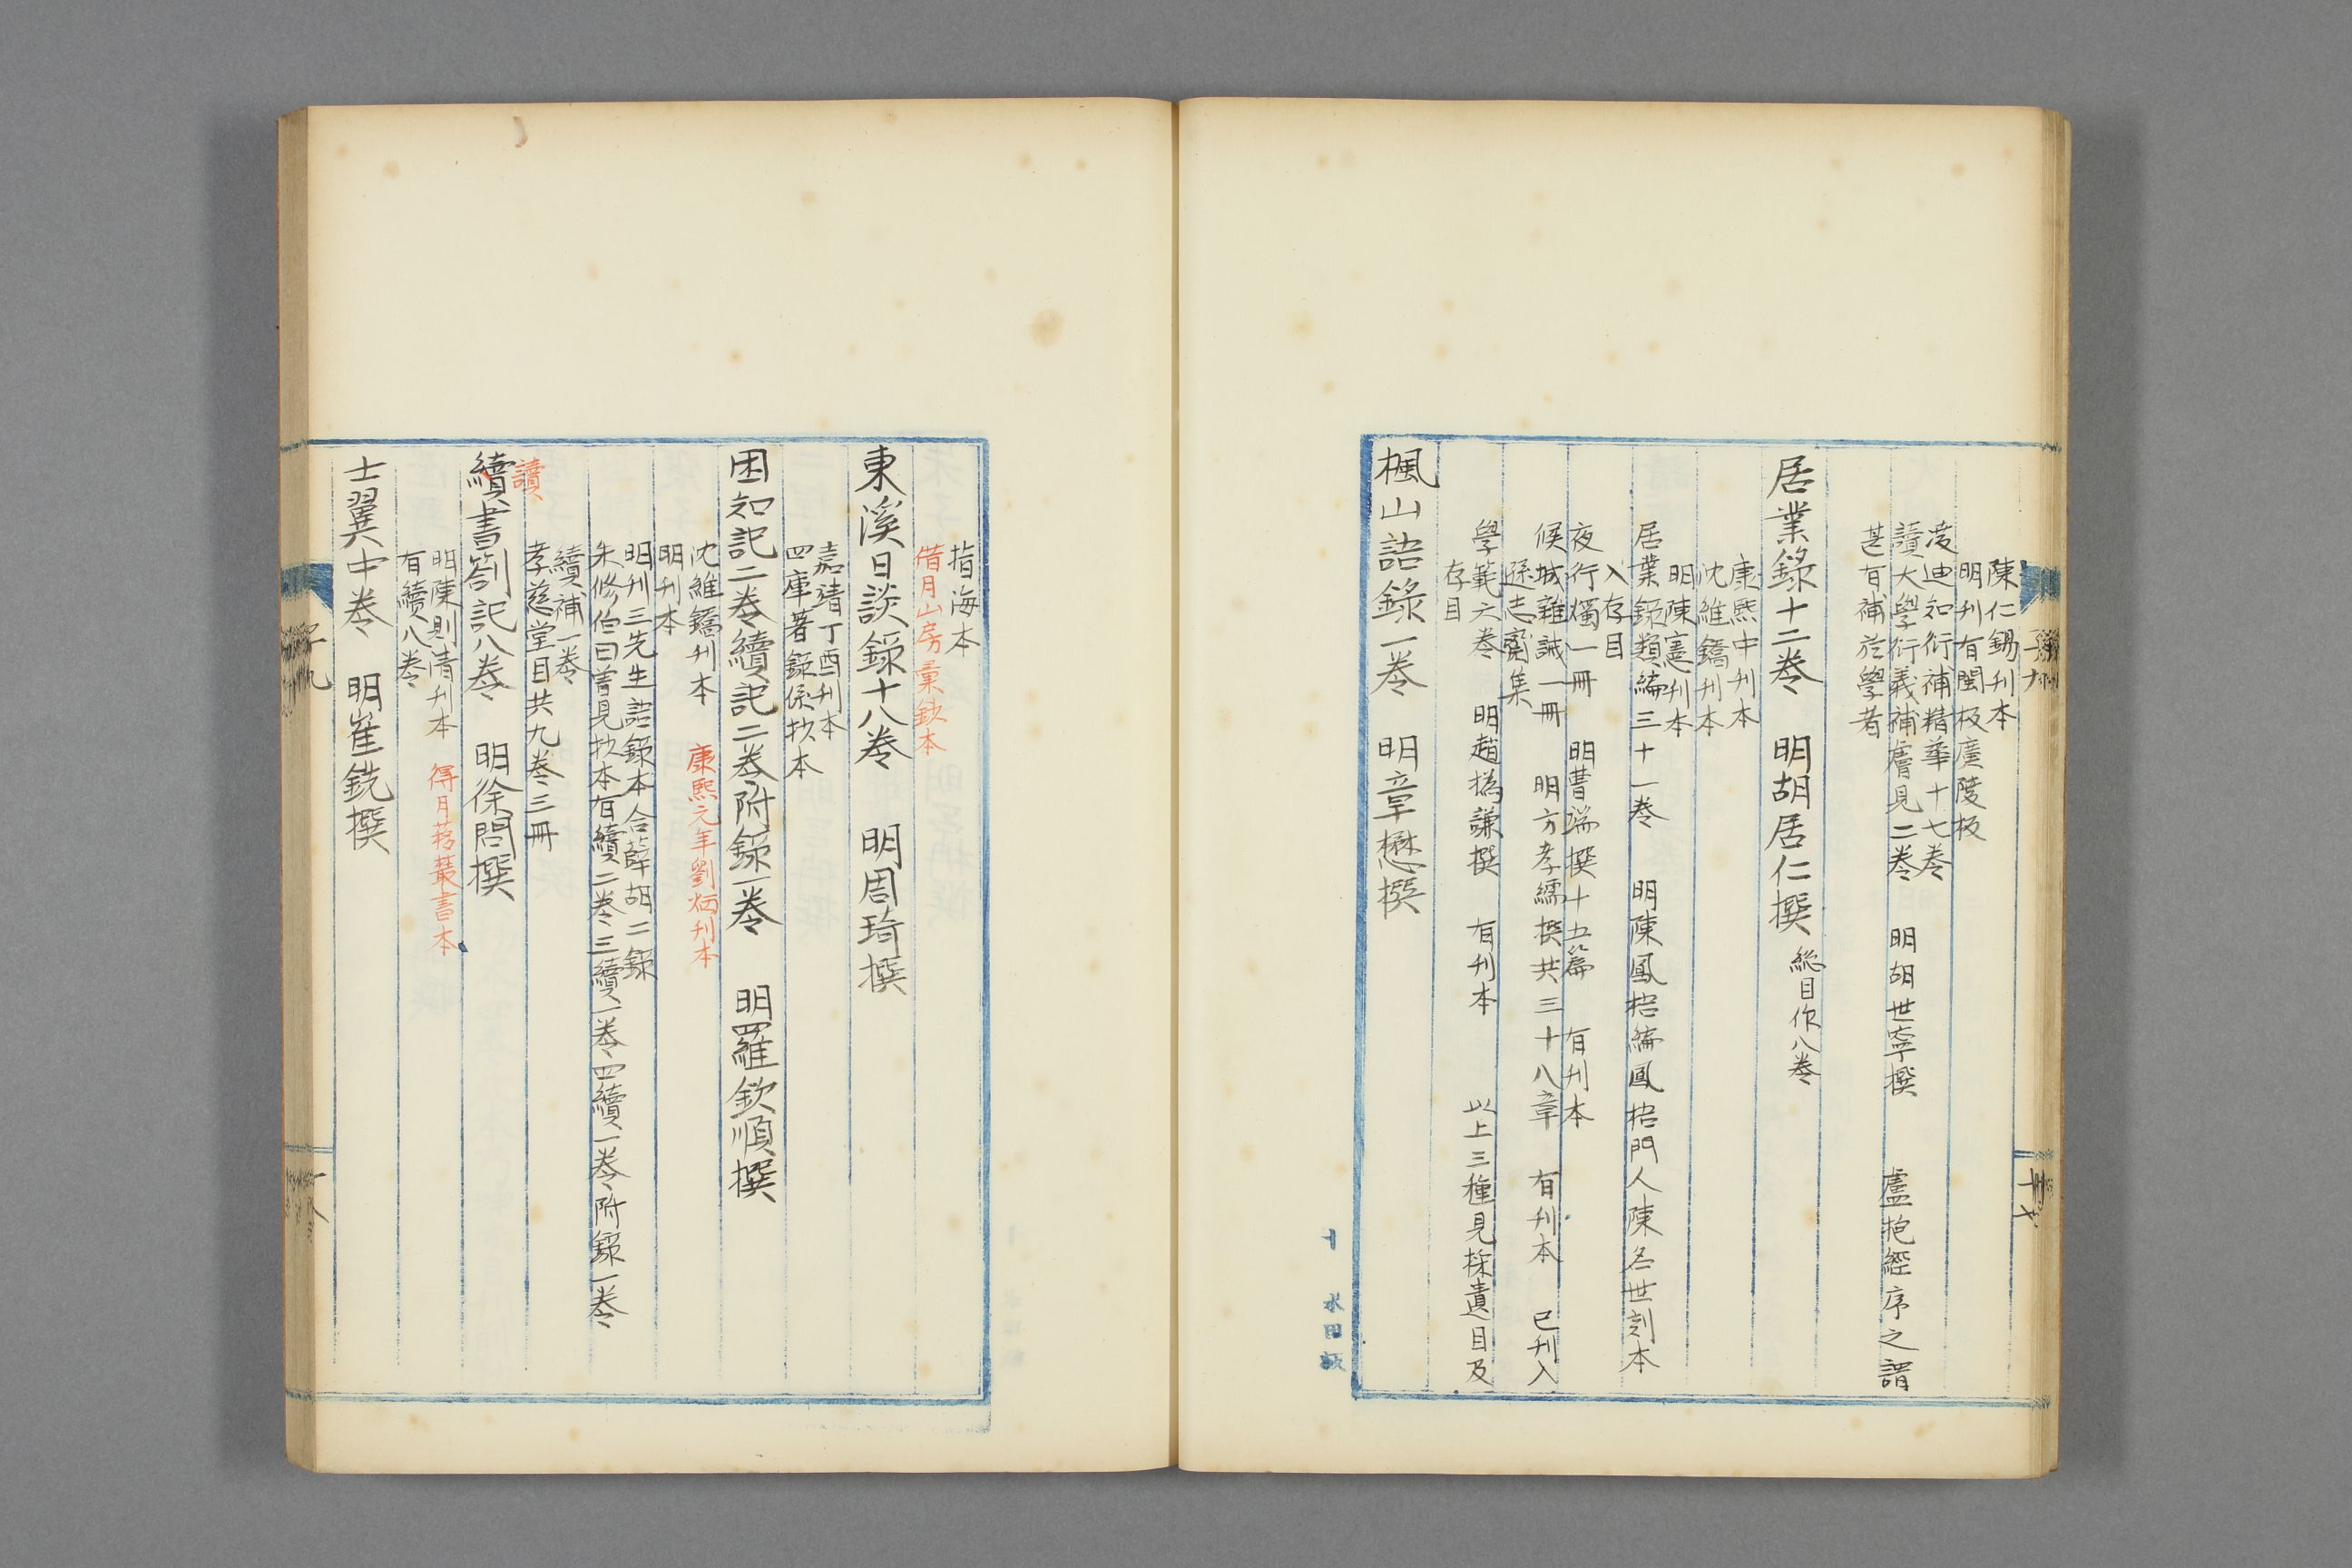 陳仁錫刊本
明刊有閩板廣陵板
凌迪知衍補精華十七卷
讀大學衍義補膚見二卷　明胡世寧撰　盧抱經序之謂
甚有補於學者
居業錄十二卷　明胡居仁撰　総目作八卷
康熙中刊本
沈維鐈刊本
明陳憲刊本
居業錄類編三十一卷　明陳鳳梧編鳳梧門人陳名世刻本
入存目
夜行燭一冊　明曹端撰十五篇　有刊本
候城雜誡一冊　明方孝孺撰共三十八章　有刊本　已刊入
遜志齋集
學範六卷　明趙撝謙撰　有刊本　以上三種見採遺目及
存目
楓山語錄一卷　明章懋撰
指海本
借月山房彙鈔本
東溪日談錄十八卷　明周琦撰
嘉靖丁酉刊本
四庫著錄係抄本
困知記二卷續記二卷附錄一卷　明羅欽順撰
沈維鐈刊本　康熙元年劉炳刊本
明刊本
明刊三先生語錄本合薛胡二錄
朱修伯曰曾見抄本有續二卷三續一卷四續一卷附錄一卷
續補一卷
孝慈堂目共九卷三冊
讀
續書劄記八卷　明徐問撰
明陳則清刊本　得月簃叢書本
有續八卷
士翼中卷　明崔銑撰
子九
十八